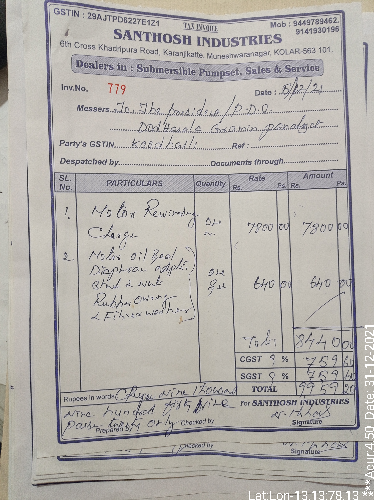 GSTIN : 29AJTPD6227E1Z1 TAX INVOICE Mob : 9449789462,
9141930196
SANTHOSH INDUSTRIES
6th Cross Khadripura Road, Karanjikatte, Muneshwaranagar, KOLAR-563 101.
Dealers in : Submersible Pumpset, Sales & Service
Inv.No. 779 Date :
Messers To, The President / P.D.O
Party's GSTIN Ref :
Despatched by Documents through
SL No. PARTICULARS Quantity Rate Rs. Ps. Amount Rs. Ps.
1. Motor Rewinding one 7800 00 7800 00
Charge
2 Motor oil Seal
one 640 00 640 00
Set
Total 8440 00
CGST 9 % 759 60
SGST 9 % 759 60
TOTAL 9959 20
Rupees in words nine thousand
nine hundred fifty nine
only
For SANTHOSH INDUSTRIES
Prepared by Checked by Signature
Checked by Signature
Lat Lon-13.13:78.13
**Acur:4.50 Date:31-12-2021